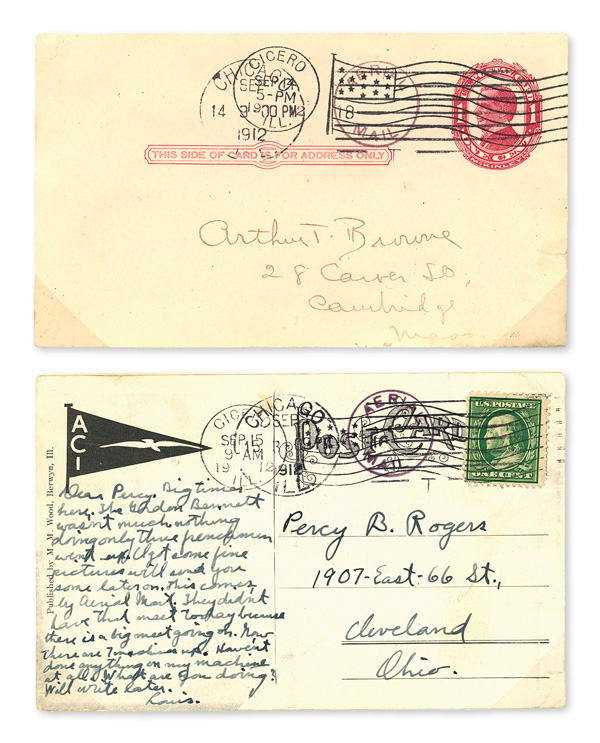 CICERO
SEP 14
5-PM
1912
ILL.
CHICAGO
SEP
14 9-00 PM
1912
AERIAL
MAIL
18
1
1
McKINLEY
THIS SIDE OF CARD IS FOR ADDRESS ONLY
Arthur T. Browne
28 Carver St.
Cambridge
Mass.
ACI
CICERO
SEP 15
9-AM
1912
ILL.
CHICAGO
SEP
1912
ILL.
POST CARD
AERIAL
MAIL
U.S. POSTAGE
ONE CENT
Published by M. M. Wood, Berwyn, Ill.
Dear Percy. Big times
here. The Gordon Bennett
wasn't much, nothing
doing only three frenchmen
went up. Got some fine
pictures will send you
some later on. This comes
by Aerial Mail. They didn't
have that meet today because
there is a big meet going on. Now
there are 7 machines up. Haven't
done anything on my machine
at all. What are you doing?
Will write later.
Louis.
Percy B. Rogers
1907-East-66 St.,
Cleveland
Ohio.